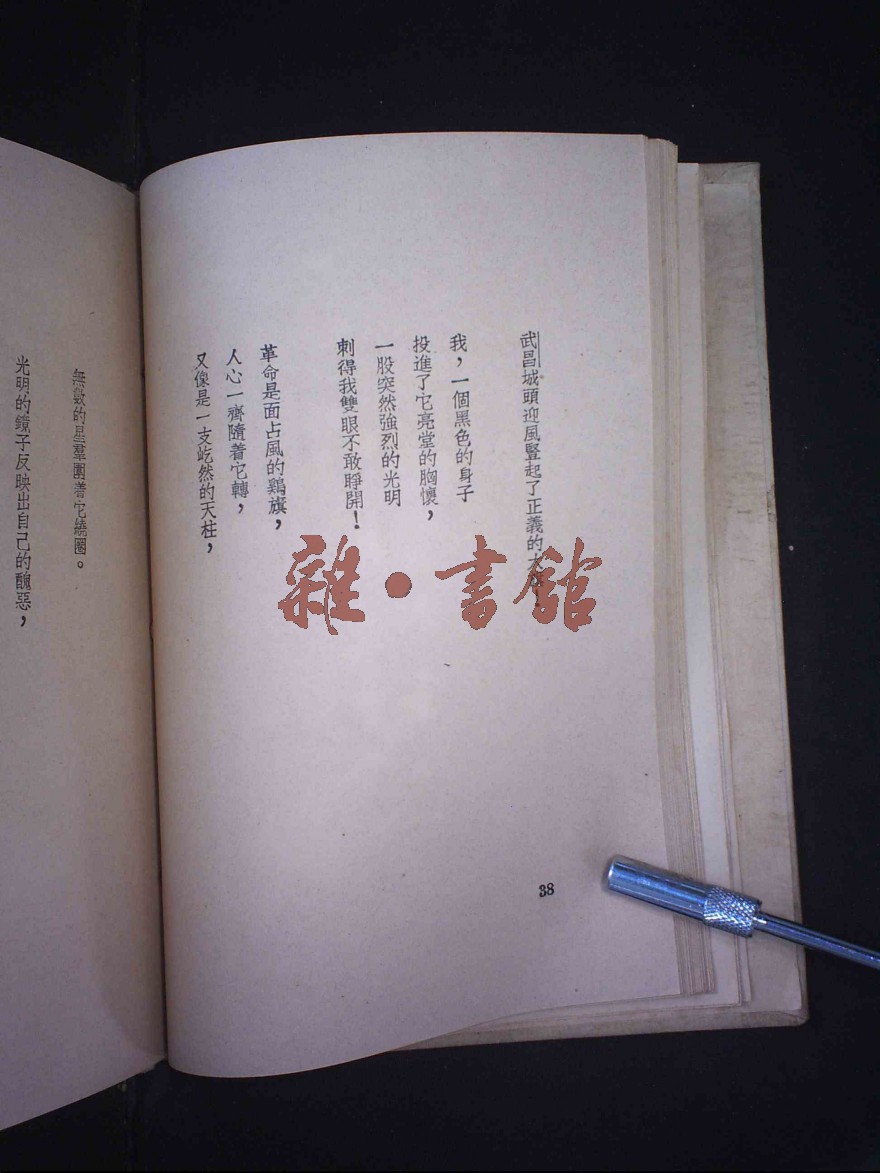 武昌城頭迎風豎起了正義的大旗！
我，一個黑色的身子
投進了它亮堂的胸懷，
一股突然強烈的光明
刺得我雙眼不敢睜開！
革命是面占風的鷄旗，
人心一齊隨着它轉，
又像是一支屹然的天柱，
38
無數的星羣圍着它繞圈。
光明的鏡子反映出自己的醜惡，
雜·書館